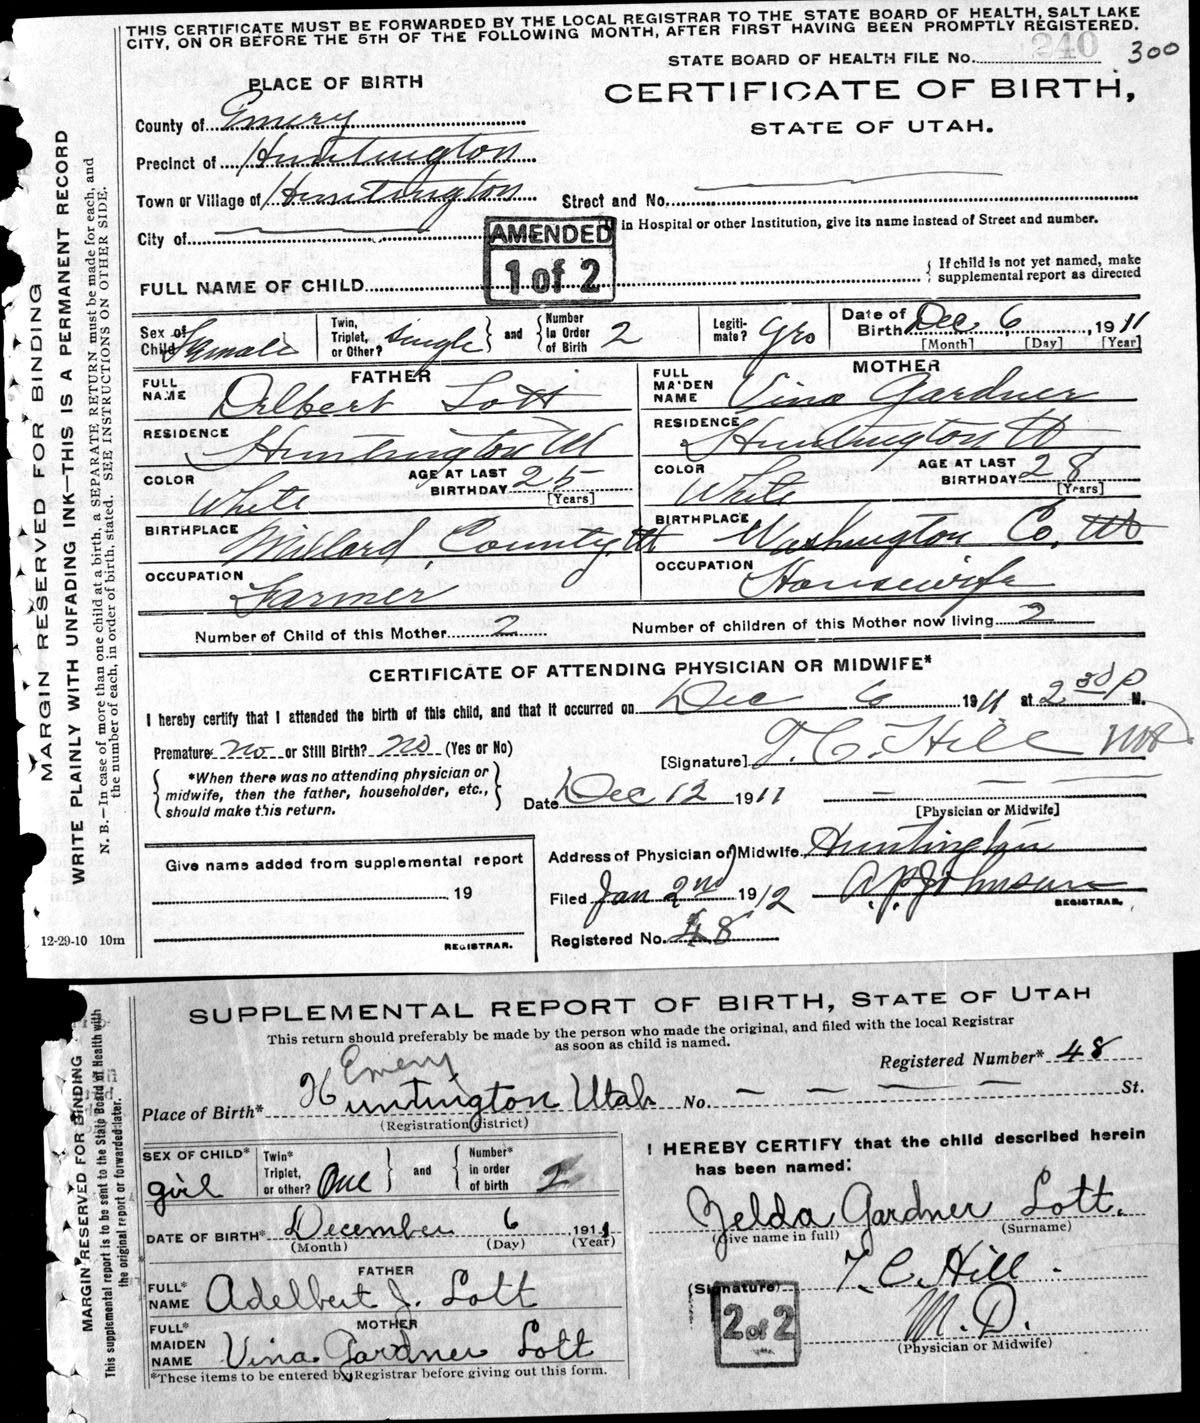 THIS CERTIFICATE MUST BE FORWARDED BY THE LOCAL REGISTRAR TO THE STATE BOARD OF HEALTH, SALT LAKE
CITY, ON OR BEFORE THE 5TH OF THE FOLLOWING MONTH, AFTER FIRST HAVING BEEN PROMPTLY REGISTERED.
STATE BOARD OF HEALTH FILE No. 240 300
PLACE OF BIRTH
CERTIFICATE OF BIRTH,
STATE OF UTAH.
County of Emery
Precinct of Huntington
Town or Village of Huntington Street and No.
in Hospital or other Institution, give its name instead of Street and number.
City of
AMENDED
1 of 2
FULL NAME OF CHILD
{ If child is not yet named, make
supplemental report as directed
Sex of Child Female Twin, Triplet, or Other? Single } and { Number in Order of Birth 2 Legiti- mate? Date of Birth Dec 6, 1911
[Month] [Day] [Year]
FATHER MOTHER
FULL NAME Delbert Lott FULL MAIDEN NAME Vina Gardner
RESIDENCE Huntington Ut RESIDENCE Huntington Ut
COLOR White AGE AT LAST BIRTHDAY 25 [Years] COLOR White AGE AT LAST BIRTHDAY 28 [Years]
BIRTHPLACE Millard County, Ut BIRTHPLACE Washington Co, Ut
OCCUPATION Farmer OCCUPATION Housewife
Number of Child of this Mother 2 Number of children of this Mother now living 2
CERTIFICATE OF ATTENDING PHYSICIAN OR MIDWIFE*
I hereby certify that I attended the birth of this child, and that it occurred on Dec 6 1911 at 2 30 P M.
Premature no or Still Birth? no (Yes or No)
[Signature] T. C. Hill MD
{ *When there was no attending physician or
midwife, then the father, householder, etc.,
should make this return. }
Date Dec 12 1911
[Physician or Midwife]
Give name added from supplemental report
19
REGISTRAR.
Address of Physician or Midwife Huntington
Filed Jan 2nd 1912 A. P. Johnson
REGISTRAR.
Registered No. 48
12-29-10 10m
MARGIN RESERVED FOR BINDING
WRITE PLAINLY WITH UNFADING INK—THIS IS A PERMANENT RECORD
N. B.—In case of more than one child at a birth, a SEPARATE RETURN must be made for each, and
the number of each, in order of birth, stated. SEE INSTRUCTIONS ON OTHER SIDE.
SUPPLEMENTAL REPORT OF BIRTH, STATE OF UTAH
This return should preferably be made by the person who made the original, and filed with the local Registrar
as soon as child is named.
Registered Number* 48
Emery
Place of Birth* Huntington Utah No. — — — — St.
(Registration district)
SEX OF CHILD* girl Twin* Triplet, or other? One } and { Number* in order of birth 2
DATE OF BIRTH* December 6 1911
(Month) (Day) (Year)
FATHER
FULL* NAME Adelbert J. Lott
MOTHER
FULL* MAIDEN NAME Vina Gardner Lott
*These items to be entered by Registrar before giving out this form.
I HEREBY CERTIFY that the child described herein
has been named:
Zelda Gardner Lott.
(Give name in full) (Surname)
(Signature) T. C. Hill.
M. D.
(Physician or Midwife)
2 of 2
MARGIN RESERVED FOR BINDING
This supplemental report is to be sent to the State Board of Health with
the original report or forwarded later.